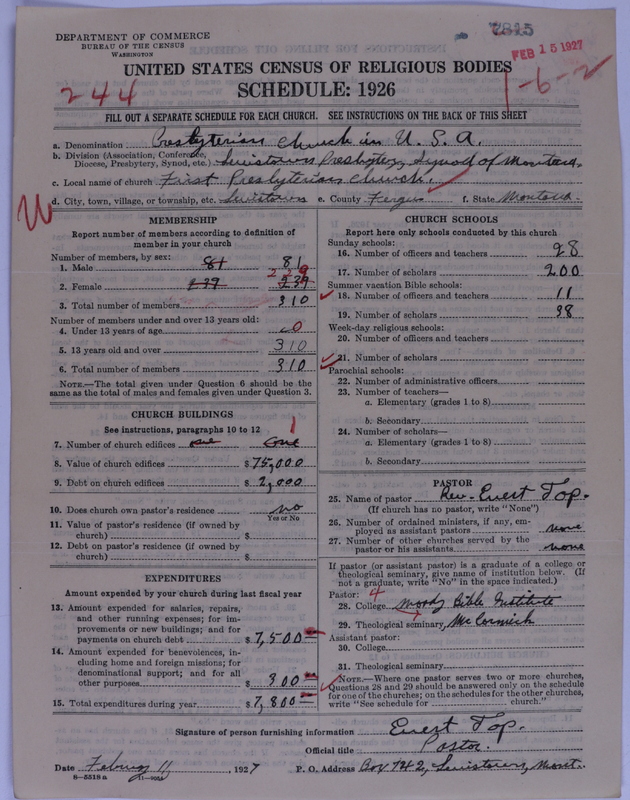 DEPARTMENT OF COMMERCE
BUREAU OF THE CENSUS
WASHINGTON
2815
FEB 15 1927
UNITED STATES CENSUS OF RELIGIOUS BODIES
SCHEDULE: 1926
244
1-6-2
FILL OUT A SEPARATE SCHEDULE FOR EACH CHURCH. SEE INSTRUCTIONS ON THE BACK OF THIS SHEET
a. Denomination Presbyterian Church in U. S. A.
b. Division (Association, Conference, Diocese, Presbytery, Synod, etc.) Lewistown Presbytery, Synod of Montana.
c. Local name of church First Presbyterian Church.
d. City, town, village, or township, etc. Lewistown e. County Fergus f. State Montana.
MEMBERSHIP
Report number of members according to definition of
member in your church
Number of members, by sex:
1. Male 81 81
2. Female 239 239 229
3. Total number of members 310
Number of members under and over 13 years old:
4. Under 13 years of age 0
5. 13 years old and over 310
6. Total number of members 310
NOTE.—The total given under Question 6 should be
same as the total of males and females given under Question 3.
CHURCH BUILDINGS
See instructions, paragraphs 10 to 12
7. Number of church edifices one one 1
8. Value of church edifices $75,000
9. Debt on church edifices $2,000
10. Does church own pastor's residence no
Yes or No
11. Value of pastor's residence (if owned by
church) $
12. Debt on pastor's residence (if owned by
church) $
EXPENDITURES
Amount expended by your church during last fiscal year
13. Amount expended for salaries, repairs,
and other running expenses; for im-
provements or new buildings; and for
payments on church debt $7,500
14. Amount expended for benevolences, in-
cluding home and foreign missions; for
denominational support; and for all
other purposes 300
15. Total expenditures during year $7,800
CHURCH SCHOOLS
Report here only schools conducted by this church
Sunday schools:
16. Number of officers and teachers 28
17. Number of scholars 200
Summer vacation Bible schools:
18. Number of officers and teachers 11
19. Number of scholars 98
Week-day religious schools:
20. Number of officers and teachers
21. Number of scholars
Parochial schools:
22. Number of administrative officers
23. Number of teachers—
a. Elementary (grades 1 to 8)
b. Secondary
24. Number of scholars—
a. Elementary (grades 1 to 8)
b. Secondary
PASTOR
25. Name of pastor Rev. Evert Top.
(If church has no pastor, write "None")
26. Number of ordained ministers, if any, em-
ployed as assistant pastors none
27. Number of other churches served by the
pastor or his assistants none
If pastor (or assistant pastor) is a graduate of a college or
theological seminary, give name of institution below. (If
not a graduate, write "No" in the space indicated.)
Pastor: 4
28. College Moody Bible Institute
29. Theological seminary, McCormick
Assistant pastor:
30. College
31. Theological seminary
NOTE.—Where one pastor serves two or more churches,
Questions 28 and 29 should be answered only on the schedule
for one of the churches; on the schedules for the other churches,
write "See schedule for church."
Signature of person furnishing information Evert Top.
Official title Pastor.
Date 11, 1927 P. O. Address Box 742, Lewistown, Mont.
8—5518 a